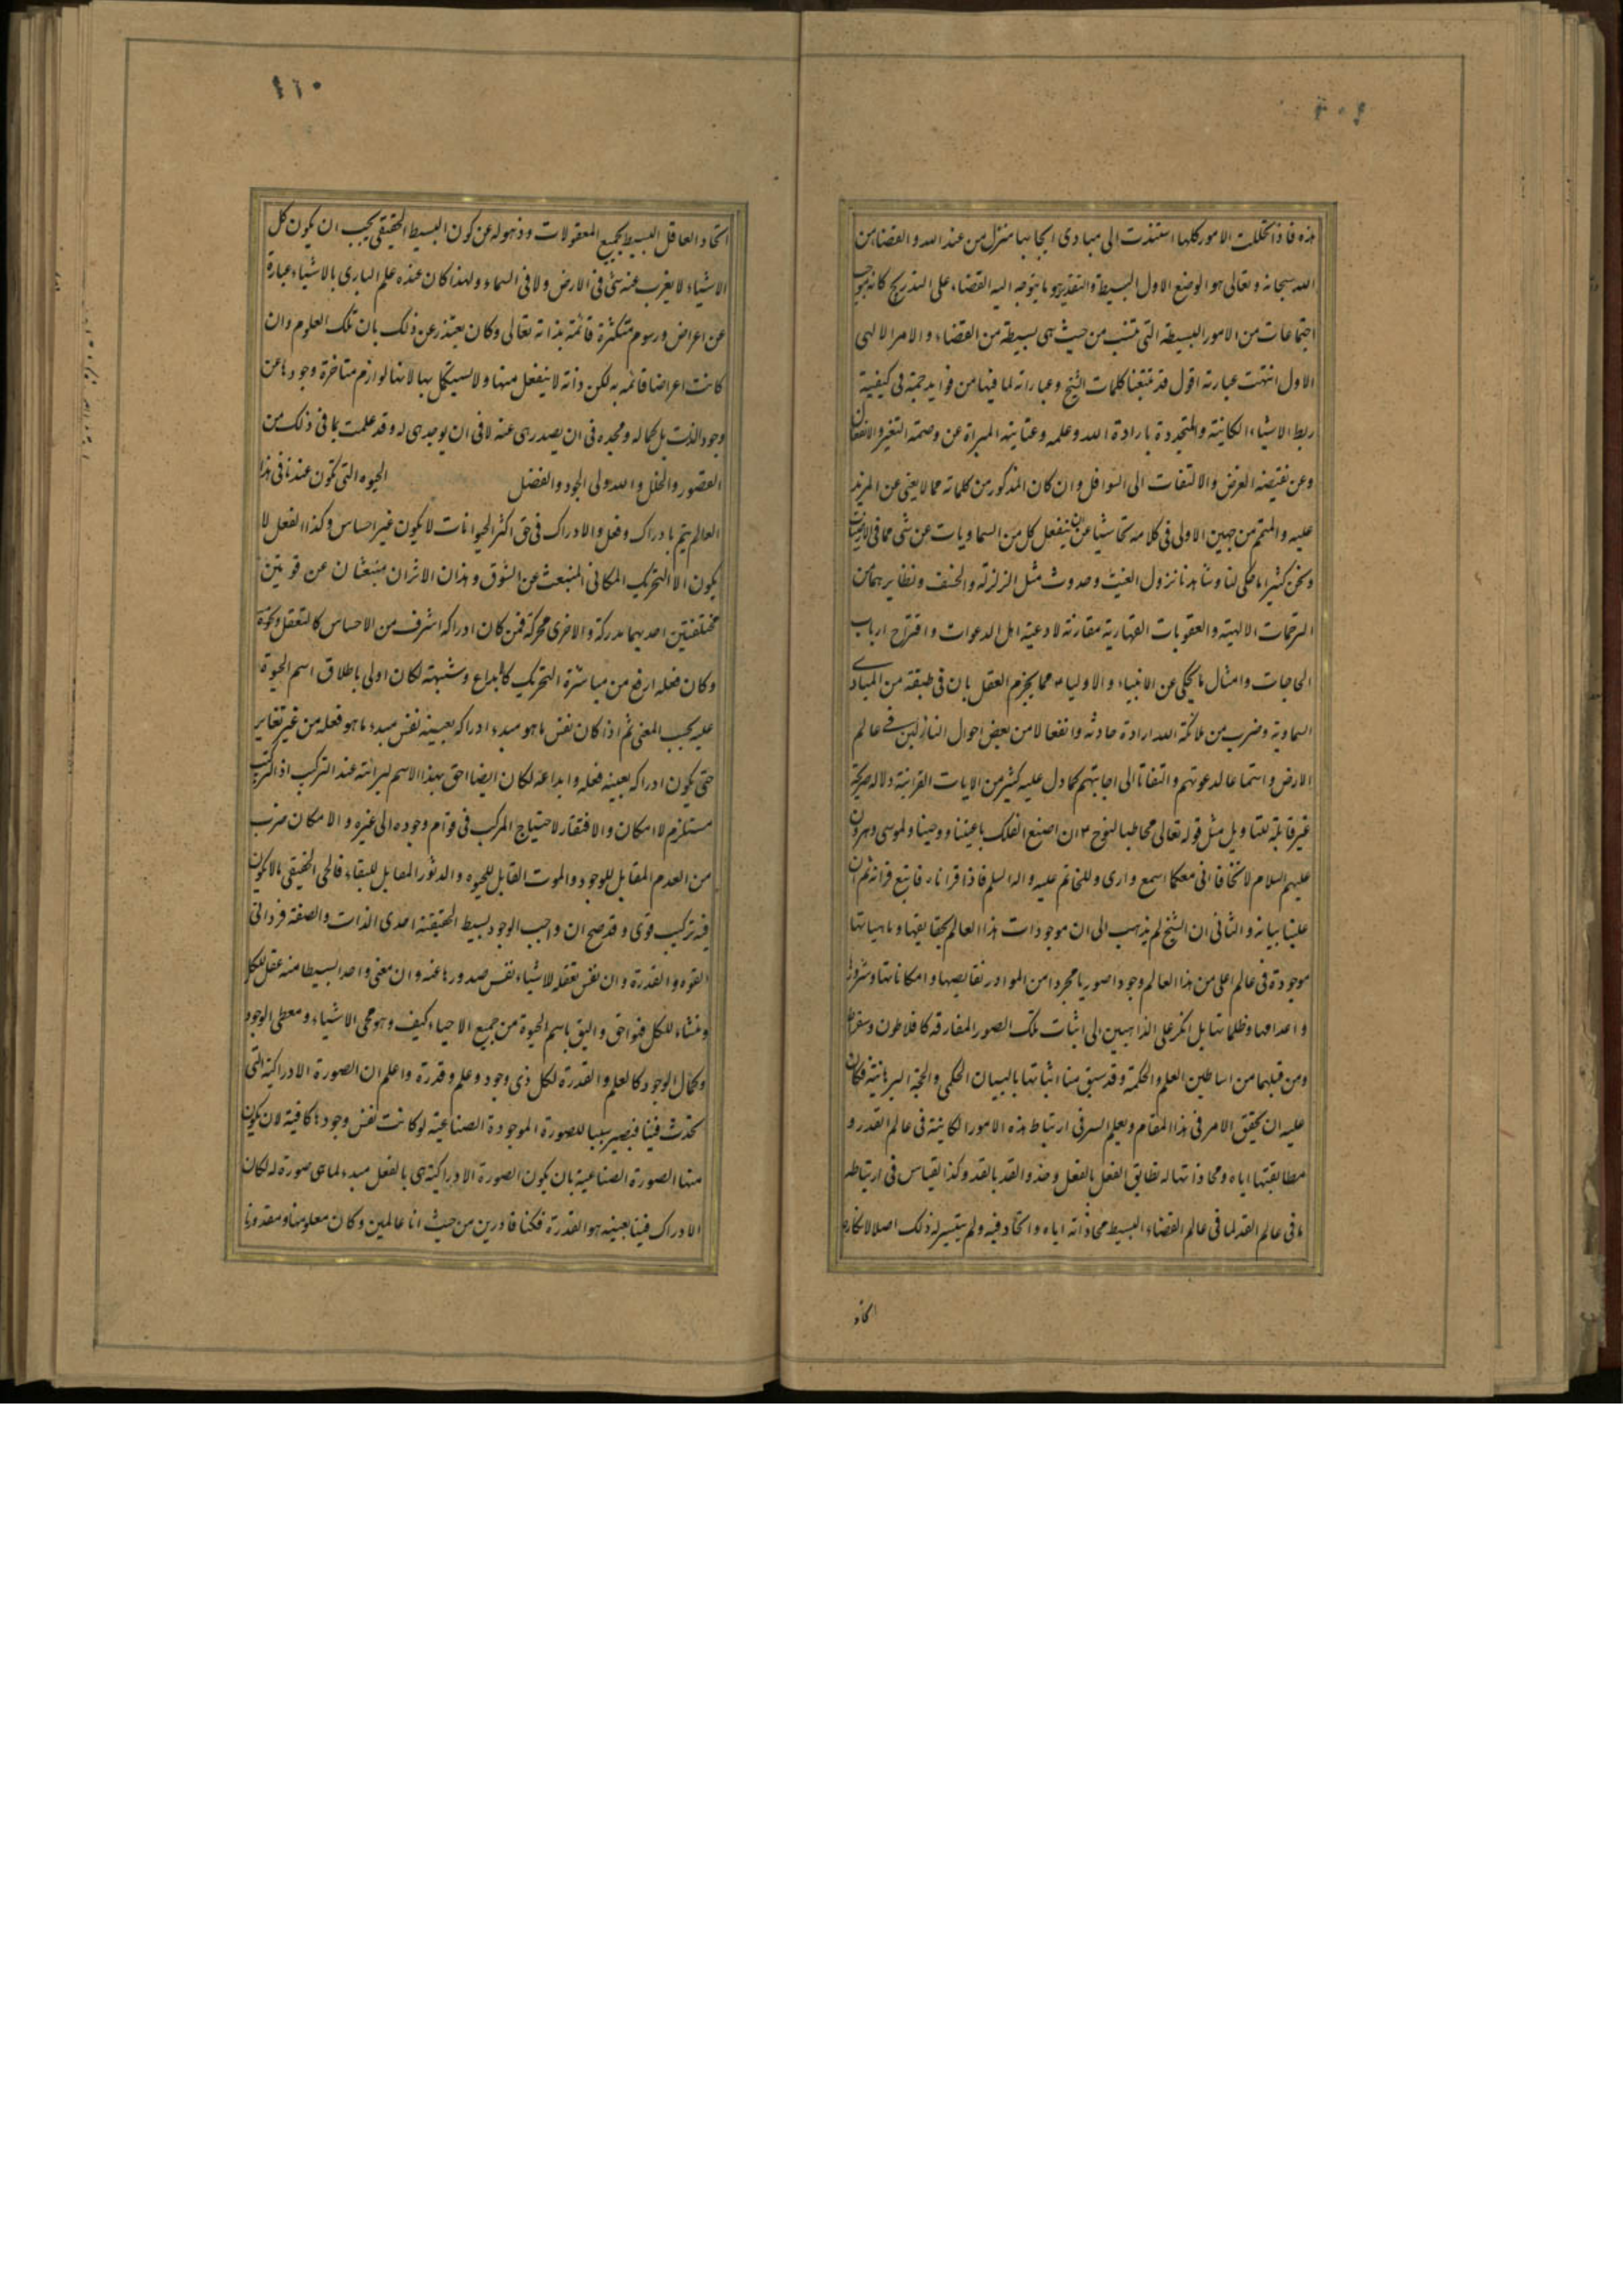 هذه فاذا تحللت الامور كلها استندت الى مبادى ايجابها منزل من عند الله والقضاء من
الله سبحانه وتعالى هو الوضع الاول البسيط والتقدير هو ما يتوجه اليه القضاء على التدريج كانه موجب
اجتماعات من الامور البسيطة التى تنسب من حيث هى بسيطة من القضاء والامر الالهى
الاول انتهت عبارته اقول قد تتبعنا كلمات الشيخ وعباراته لما فيها من فوايد جمة فى كيفية
ربط الاشياء الكاينة والمتجددة بارادة الله وعلمه وعنايته المبراة عن وصمة التغير والانفعال
وعن نقيصة الغرض والالتفات الى السوافل وان كان المذكور من كلماته مما لا يغنى عن المزيد
عليه والمتمم من جهين الاولى فى كلامه تحاشيا عن ان ينفعل كل من السماويات عن شى مما فى الارضيات
ونحن كثيرا ما حكى لنا وشاهدنا نزول الغيث وحدوث مثل الزلزلة والخسف ونظايرهما من
الرحمات الالهية والعقوبات القهارية مقارنة لادعية اهل الدعوات واقتراح ارباب
الحاجات وامثال ما يحكى عن الانبياء والاولياء مما يجزم العقل بان فى طبقة من المبادى
السماوية وضرب من ملائكة الله ارادة حادثة وانفعالا من بعض احوال النازلين فى عالم
الارض واستماعا لدعوتهم والتفاتا الى اجابتهم كما دل عليه كثير من الايات القرانية دلالة صريحة
غير قابلة للتاويل مثل قوله تعالى مخاطبا لنوح ان اصنع الفلك باعيننا ووحينا ولموسى وهرون
عليهم السلام لا تخافا انى معكما اسمع وارى وللخاتم عليه واله السلم فاذا قراناه فاتبع قرانه ثم ان
علينا بيانه والثانى ان الشيخ لم يذهب الى ان موجودات هذا العالم بحقايقها وماهياتها
موجودة فى عالم اعلى من هذا العالم وجودا صوريا مجردا من المواد ونقايصها وامكاناتها وشرورها
واعدامها وظلماتها بل انكر على الذاهبين الى اثبات تلك الصور المفارقة كافلاطون وسقراط
ومن قبلهما من اساطين العلم والحكمة وقد سبق منا اثباتها بالبيان الحكمى والحجة البرهانية فكان
عليه ان يحقق الامر فى هذا المقام ويعلم السر فى ارتباط هذه الامور الكاينة فى عالم القدر و
مطابقتها اياه ومحاذاتها له تطابق الفعل بالفعل وحذو القد بالقد وكذا القياس فى ارتباط
ما فى عالم القدر لما فى عالم القضاء البسيط محاذاته اياه واتحاده فيه ولم يتيسر له ذلك اصلا لانكاره
٤٦٠
اتحاد العاقل البسيط بجميع المعقولات وذهوله عن كون البسيط الحقيقى يجب ان يكون كل
الاشياء لا يعزب عنه شئ فى الارض ولا فى السماء ولهذا كان عنده علم البارى بالاشياء عبارة
عن اعراض ورسوم متكثرة قائمة بذاته تعالى وكان يعتذر عن ذلك بان تلك العلوم وان
كانت اعراضا قائمه به لكن ذاته لا ينفعل منها ولا يستكمل بها لانها لوازم متاخرة وجودها عن
وجود الذات بل كماله ومجده فى ان يصدر هى عنه لا فى ان يوجد هى له وقد علمت بما فى ذلك من
القصور والخلل والله ولى الجود والفضل الحيوه التى تكون عندنا فى هذا
العالم يتم بادراك وفعل والادراك فى حق اكثر الحيوانات لا يكون غير احساس وكذا الفعل لا
يكون الا التحريك المكانى المنبعث عن الشوق وهذان الاثران منبعثان عن قوتين
مختلفتين احديهما مدركة والاخرى محركة فمن كان ادراكه اشرف من الاحساس كالتعقل ونحوه
وكان فعله ارفع من مباشرة التحريك كالابداع وشبهه لكان اولى باطلاق اسم الحيوة
عليه بحسب المعنى ثم اذا كان نفس ما هو مبدء ادراكه بعينه نفس مبدء ما هو فعله من غير تغاير
حتى يكون ادراكه بعينه فعله وابداعه لكان ايضا احق بهذا الاسم لبرائته عند التركيب اذ التركيب
مستلزم لامكان والافتقار لاحتياج المركب فى قوام وجوده الى غيره والامكان ضرب
من العدم المقابل للوجود والموت القابل للحيوه والدثور المقابل للبقاء فالحى الحقيقى ما لا يكون
فيه تركيب قوى وقد صح ان واجب الوجود بسيط الحقيقة احدى الذات والصفة فردانى
القوه والقدرة وان نفس تعقله للاشياء نفس صدورها عنه وان معنى واحدا بسيطا منه عقل للكل
ومنشاء للكل فهو احق واليق باسم الحيوة من جميع الاحياء كيف وهو محى الاشياء ومعطى الوجود
وكمال الوجود كالعلم والقدرة لكل ذى وجود وعلم وقدرة واعلم ان الصورة الادراكية التى
تحدث فينا فيصير سببا للصورة الموجودة الصناعية لو كانت نفس وجودها كافية لان يكون
منها الصورة الصناعية بان يكون الصورة الادراكية هى بالفعل مبدء لما هى صورة له لكان
الادراك فينا بعينه هو القدرة فكنا قادرين من حيث انا عالمين وكان معلومنا ومقدورنا